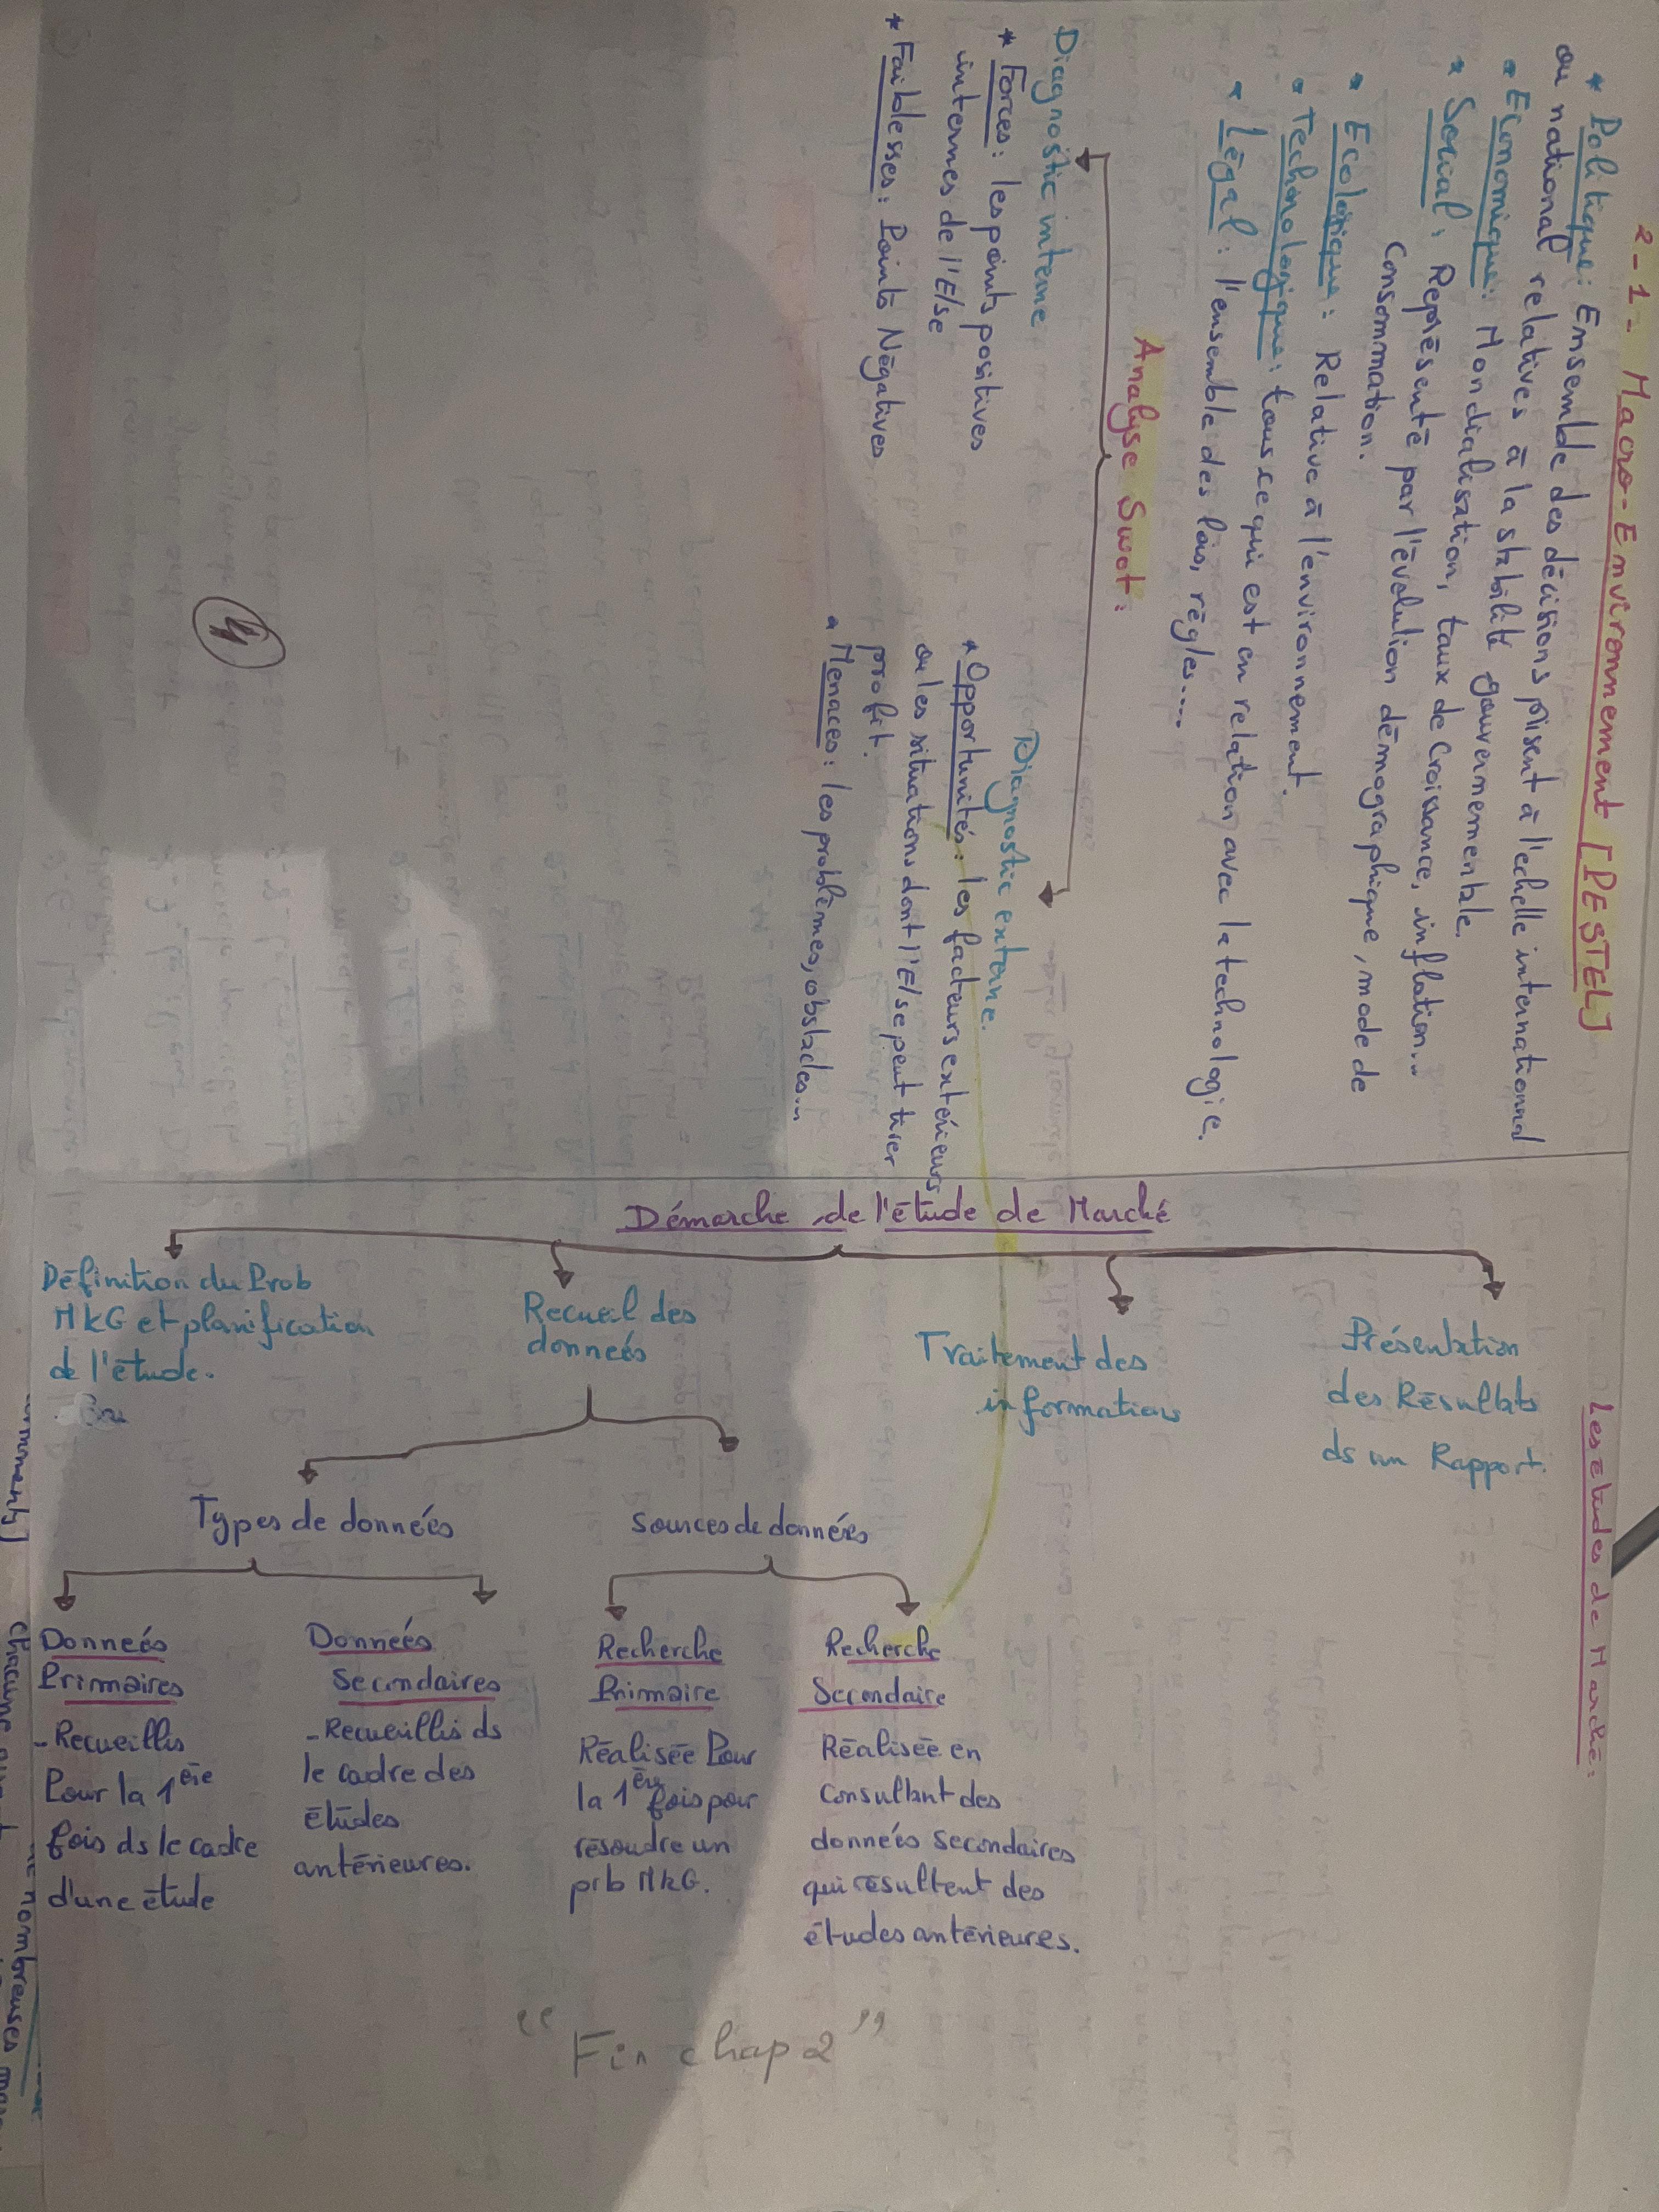 2-1- Macro-Environnement [PESTEL]
* Politique : Ensemble des décisions prisent à l'echelle international
ou national relatives à la stabilité gouvernementale.
* Economique : Mondialisation, taux de Croissance, inflation...
* Social : Représenté par l'évolution démographique, mode de
Consommation.
* Ecologique : Relative à l'environnement.
* Technologique : tous ce qui est en relation avec la technologie.
* Légal : l'ensemble des lois, règles....
Analyse Swot :
Diagnostic interne
* Forces : les points positives
internes de l'E/se
* Faiblesses : Points Négatives
Diagnostic externe.
* Opportunités : les facteurs extérieurs
ou les situations dont l'E/se peut tirer
profit.
* Menaces : les problèmes, obstacles...
4
Les études de Marché :
Démarche de l'étude de Marché
Définition du Prob
MkG et planification
de l'étude.
Recueil des
données
Traitement des
informations
Présentation
des Résultats
ds un Rapport.
Types de données
Sources de données
Données
Primaires
- Recueillis
Pour la 1ère
fois ds le cadre
d'une étude
Données
Secondaires
- Recueillis ds
le cadre des
études
antérieures.
Recherche
Primaire
Réalisée Pour
la 1ère fois pour
résoudre un
prb MkG.
Recherche
Secondaire
Réalisée en
Consultant des
données secondaires
qui résultent des
études antérieures.
"Fin chap 2"
chacune
nombreuses